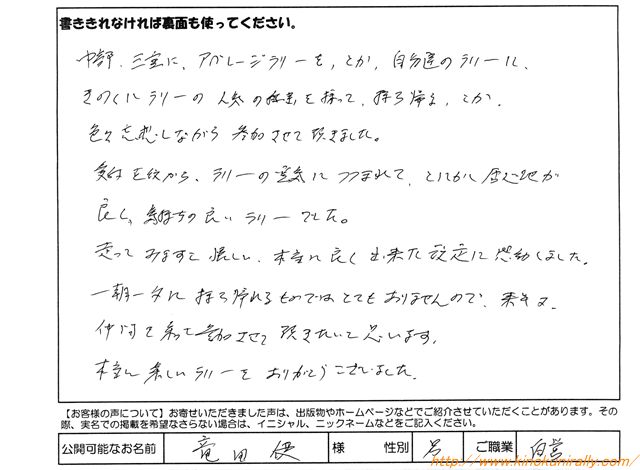 書ききれなければ裏面も使ってください。
中部、三重に、アベレージラリーを、とか、自分達のラリーに、
きのくにラリーの人気の秘密を探って、持ち帰る、とか、
色々志想しながら参加させて頂きました。
受付を終から、ラリーの空気につつまれて、とにかく居心地が
良く、気持ちの良いラリーでした。
走ってみますと悔しい、本当に良く出来た設定に感動しました。
一朝一夕に持ち帰れるものではとてもありませんので、来年又、
仲間で来って参加させて頂きたいと思います。
本当に楽しいラリーをありがとうございました。
【お客様の声について】お寄せいただきました声は、出版物やホームページなどでご紹介させていただくことがあります。その
際、実名での掲載を希望なさらない場合は、イニシャル、ニックネームなどをご記入ください。
公開可能なお名前 竜田 様 性別 男 ご職業 自営
http://www.kinokunirally.com/